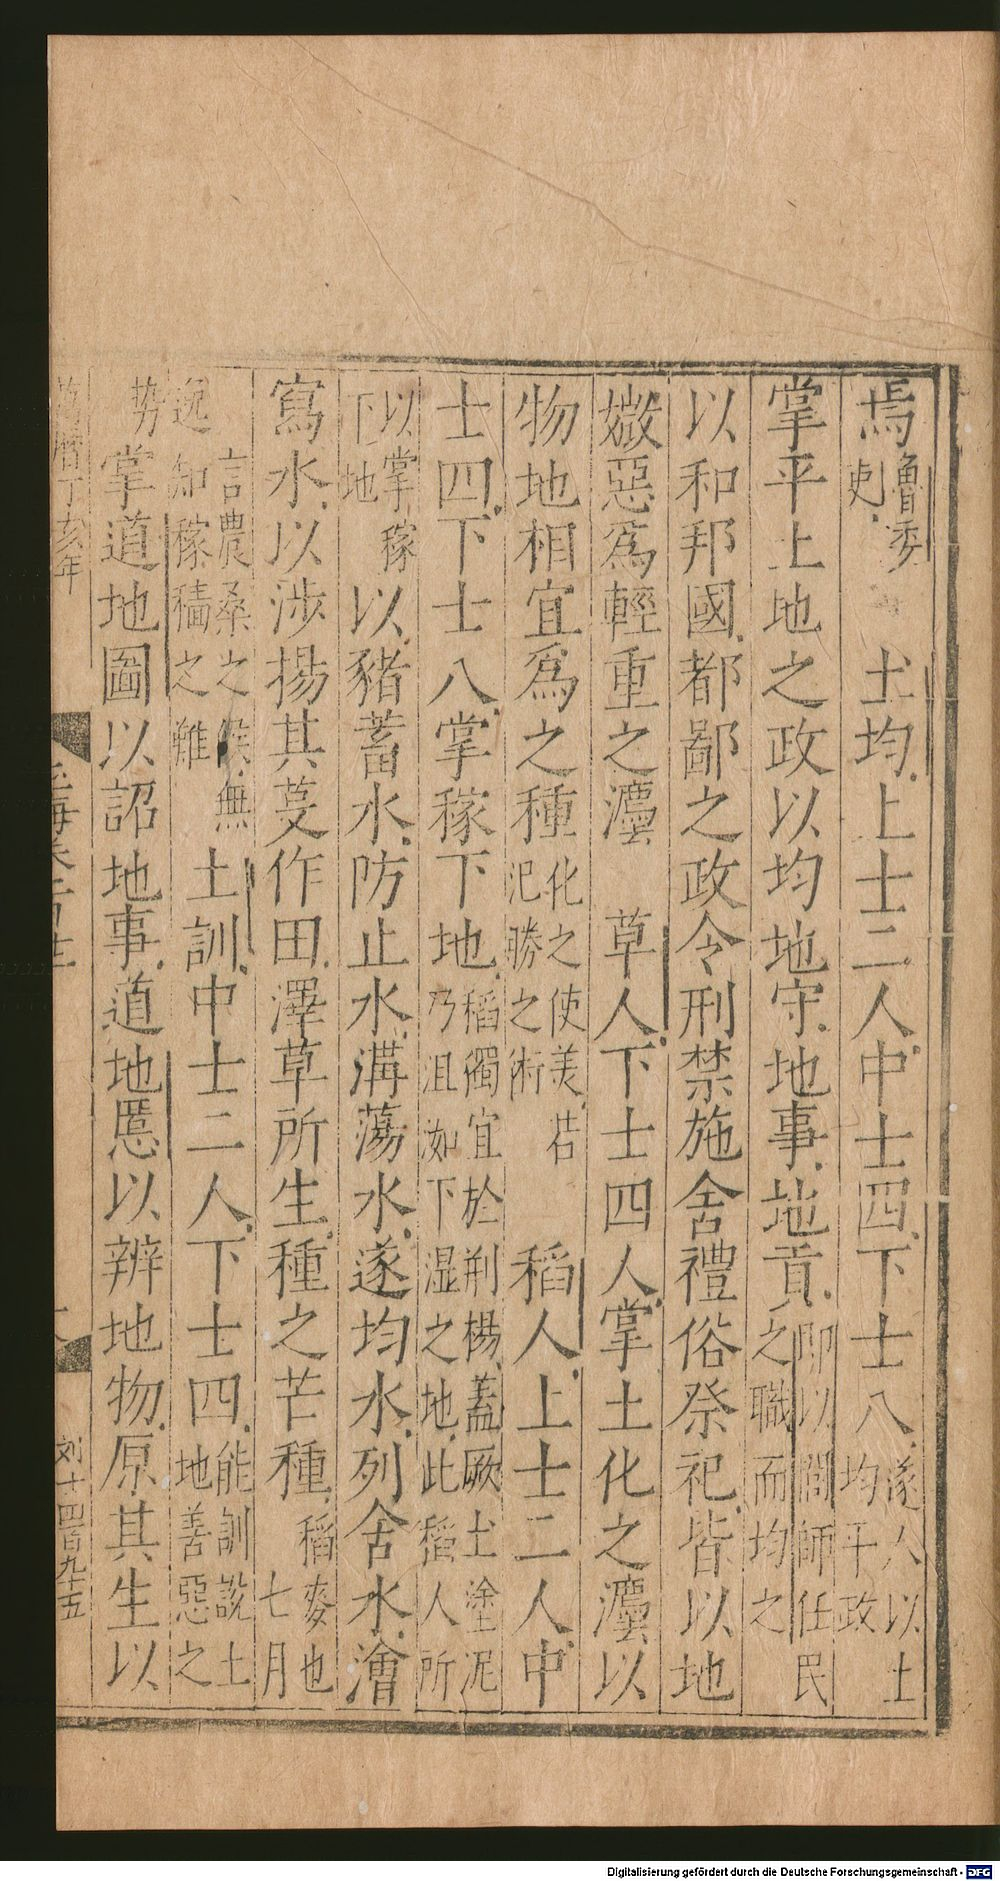 焉魯委吏土均上士二人中士四下士八遂人以土均平政
掌平土地之政以均地守地事地貢即以閭師任民之職而均之
以和邦國都鄙之政令刑禁施舍禮俗祭祀皆以地
媺惡爲輕重之灋草人下士四人掌土化之灋以
物地相宜爲之種化之使美若汜勝之術稻人上士二人中
士四下士八掌稼下地稻獨宜於荆楊蓋厥土塗泥乃沮洳下湿之地此稻人所
以掌稼下地以豬蓄水防止水溝蕩水遂均水列舍水澮
寫水以涉揚其芟作田澤草所生種之芒種稻麥也七月
言農桑之候無逸知稼穡之難土訓中士二人下士四能訓說土地善惡之
势掌道地圖以詔地事道地慝以辨地物原其生以
萬曆丁亥年
刘十四百九十五
Digitalisierung gefördert durch die Deutsche Forschungsgemeinschaft - DFG